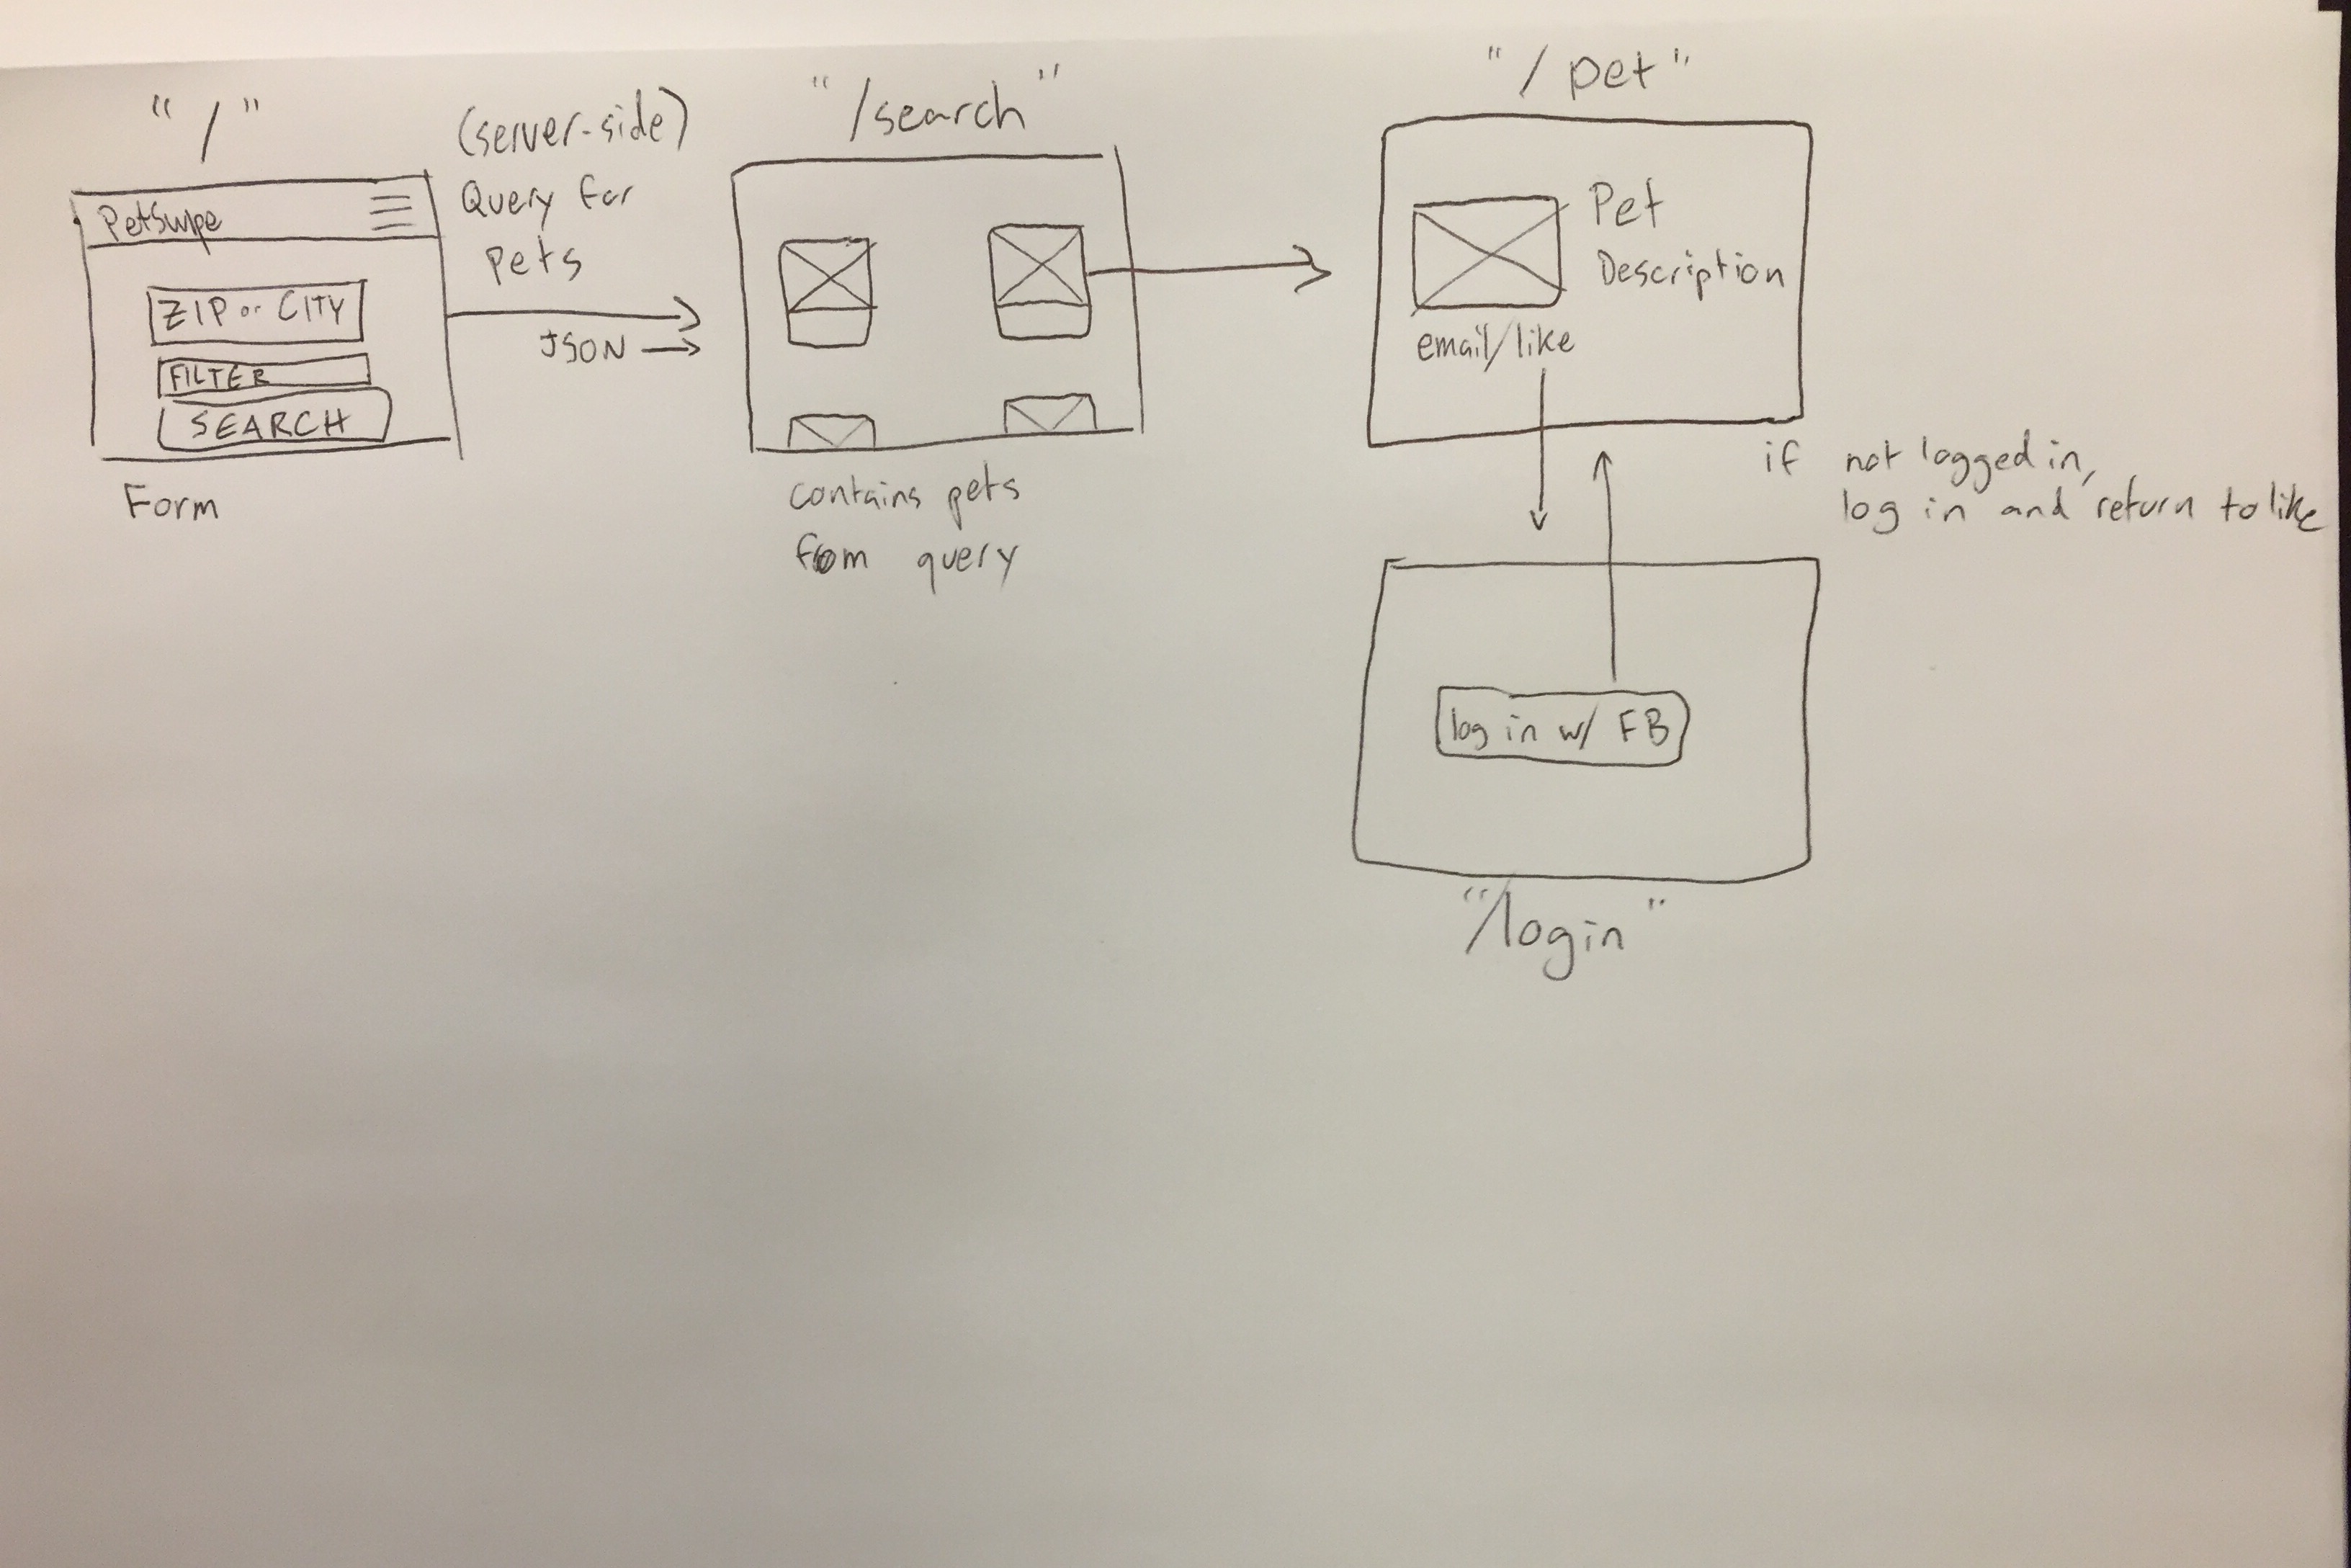 "/"
PetSwipe
ZIP or CITY
FILTER
SEARCH
Form
(server-side)
Query for
pets
JSON
"/search"
contains pets
from query
"/pet"
Pet
Description
email/like
if not logged in,
log in and return to like
log in w/ FB
"/login"